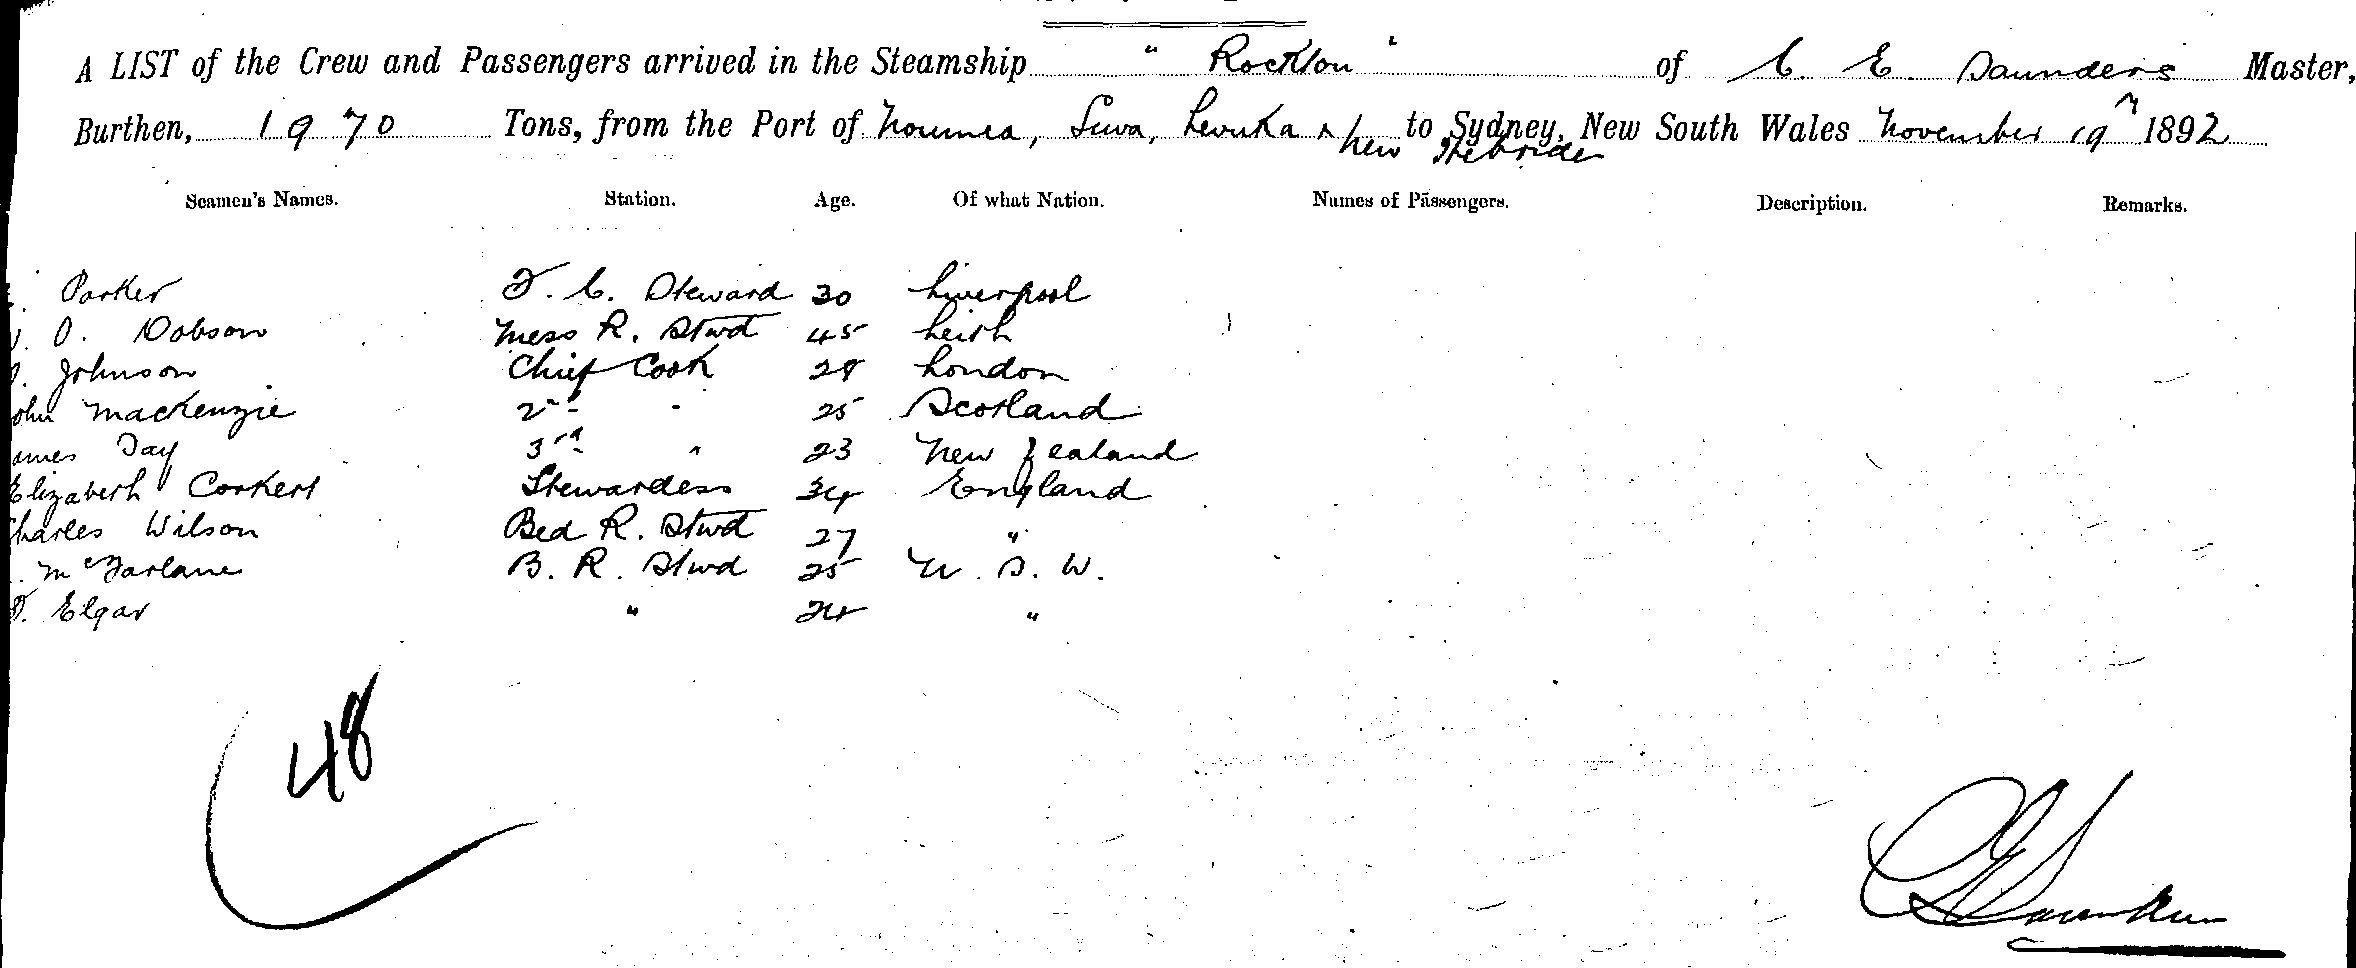 A LIST of the Crew and Passengers arrived in the Steamship " Rockton " of C. E. Saunders Master,
Burthen, 1970 Tons, from the Port of Noumea, Suva, Levuka & New Hebrides to Sydney, New South Wales November 19th 1892
Seamen's Names. Station. Age. Of what Nation. Names of Passengers. Description. Remarks.
Parker F. C. Steward 30 Liverpool
O. Dobson Mess R. Stwd 45 Leith
Johnson Chief Cook 28 London
John Mackenzie 2nd " 25 Scotland
James Day 3rd " 23 New Zealand
Elizabeth Corkert Stewardess 34 England
Charles Wilson Bed R. Stwd 27 "
McFarlane B. R. Stwd 25 N. S. W.
F. Elgar " 24 "
48
C E Saunders